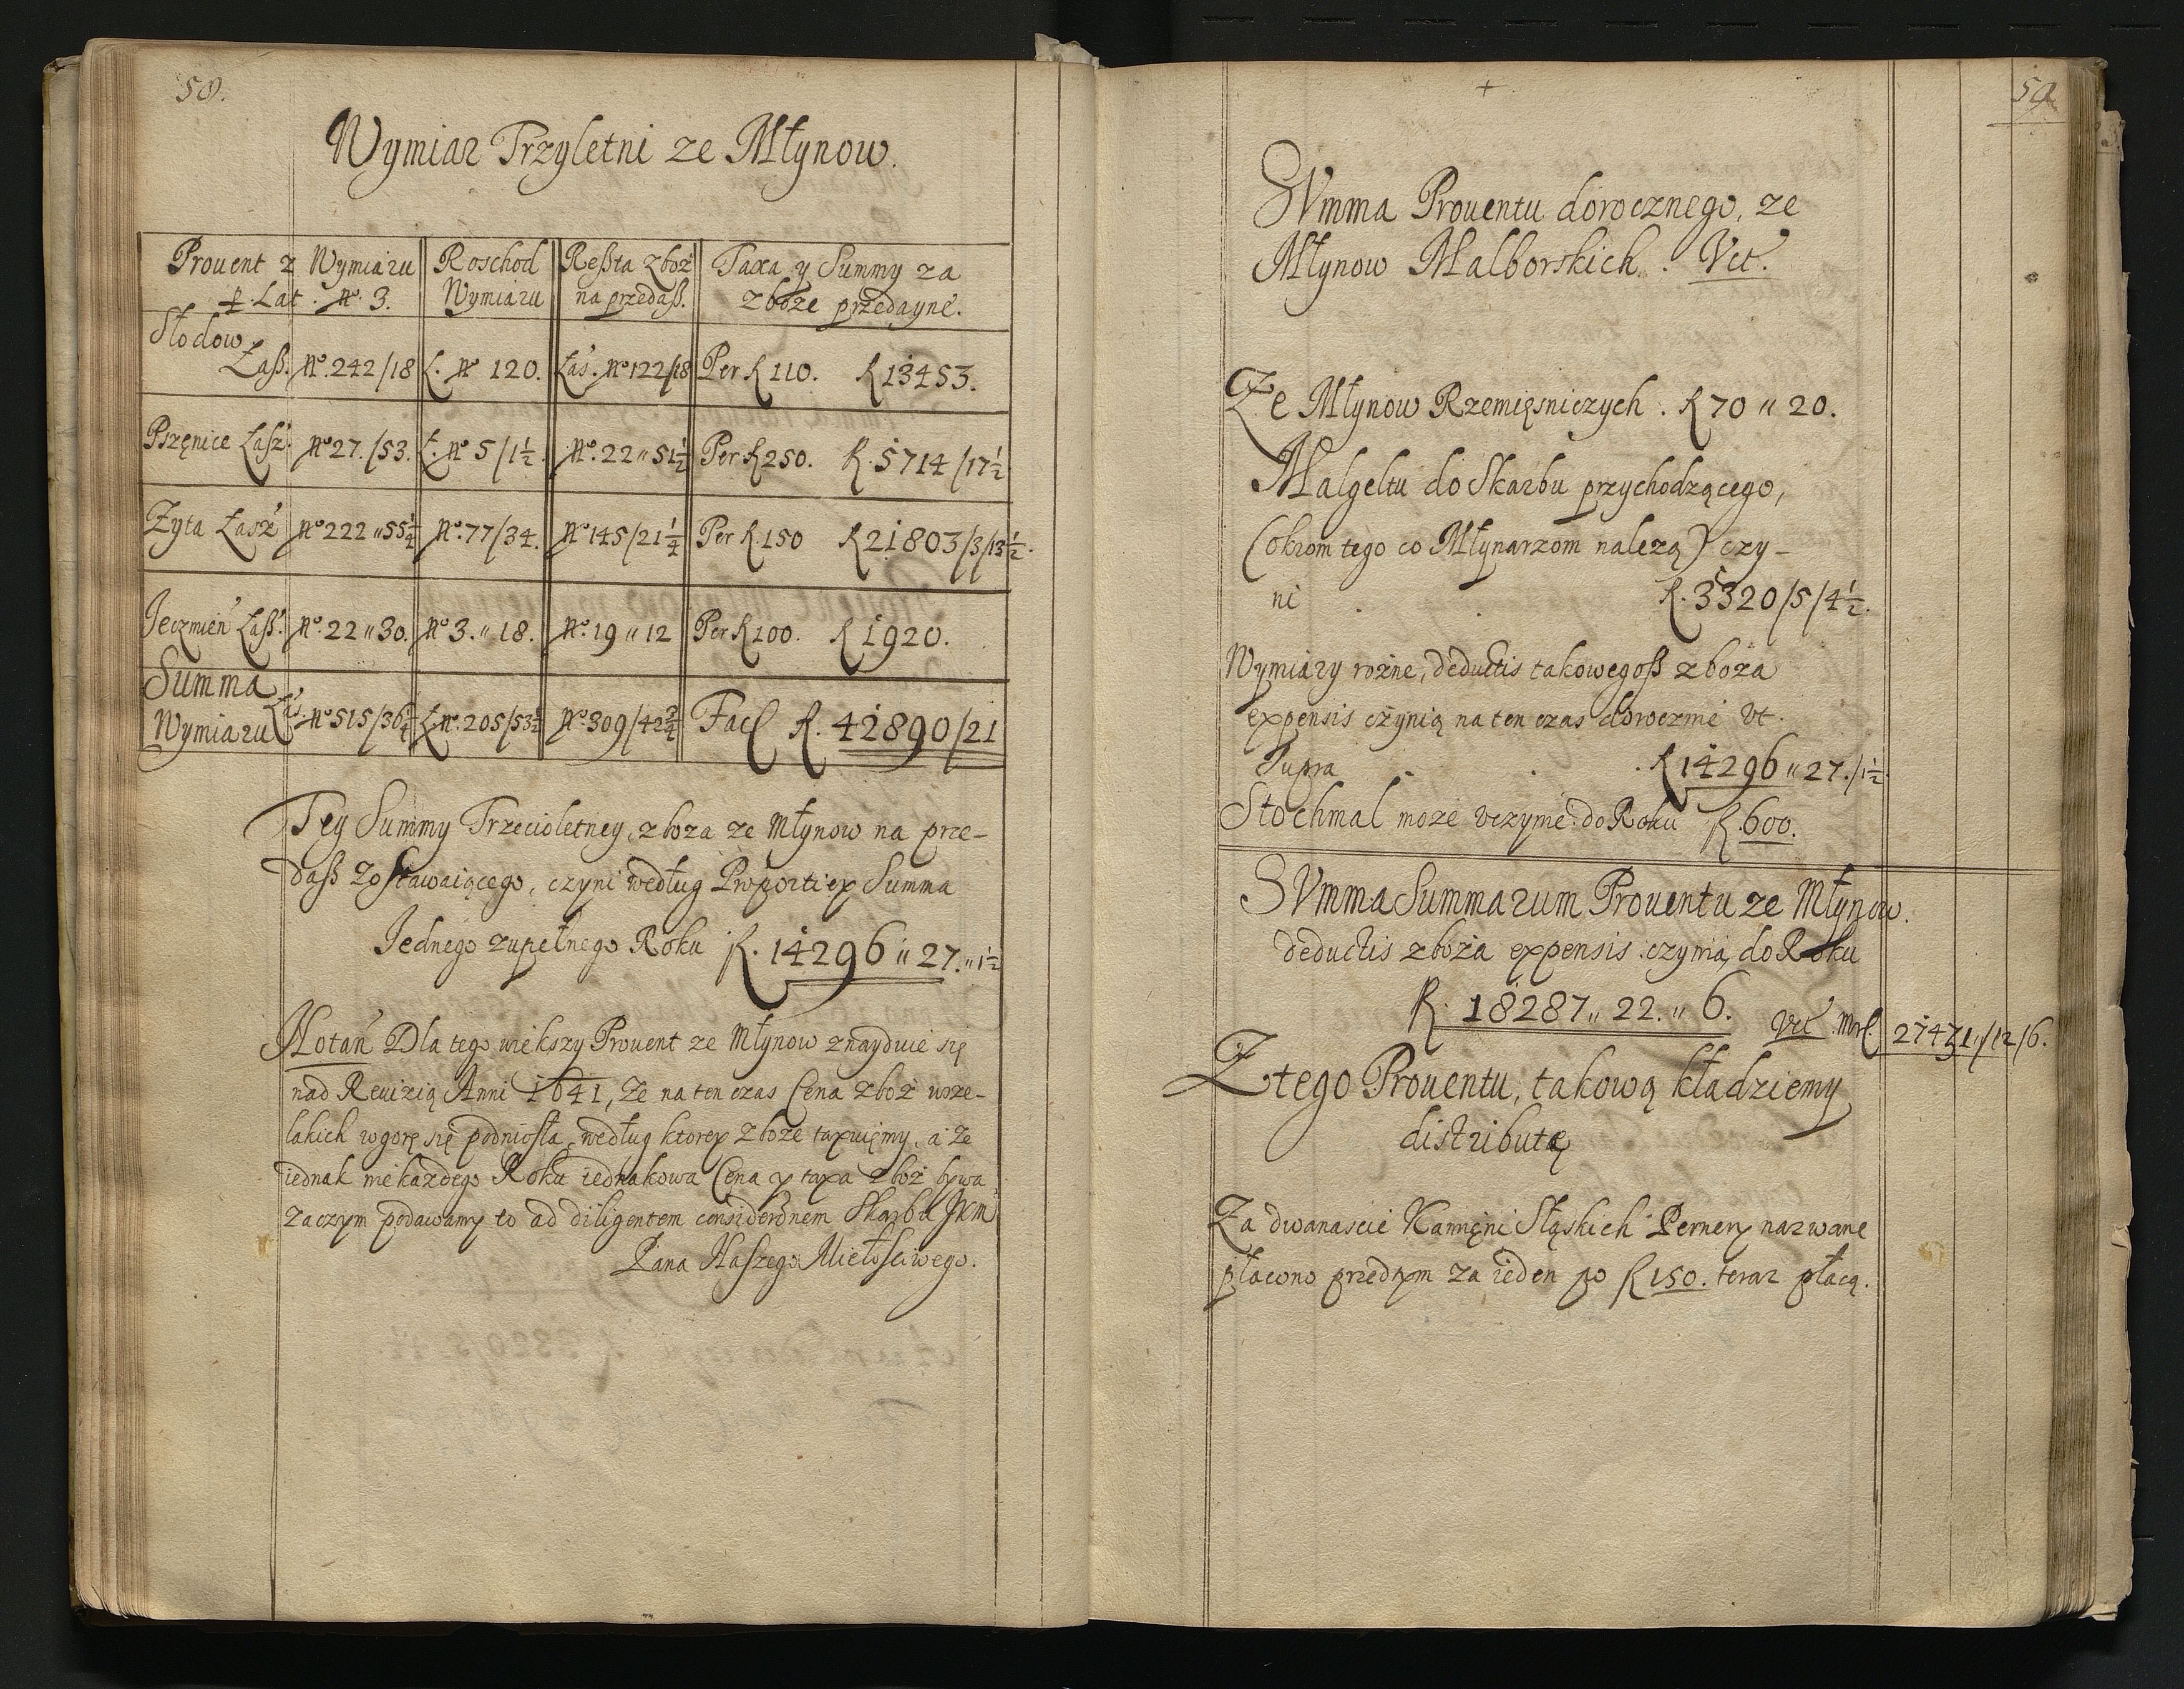 58.
Wymiar Trzyletni ze Młynow.
Prouent z Wymiaru
p. Lat. No. 3.
Roschod
Wymiaru
Reßta zboż
na przedaß.
Taxa y Summy za
zboże przedayne.
Słodow
Łaß. No. 242/18 Ł. No 120. Łas. No 122/18 Per R 110. R 13453.
Pszęnice Łasz. No 27./53. Ł. No 5/1½. No. 22 " 51½ Per R 250. R. 5714/17½
Zyta Łasz No 222 " 55¼ No. 77/34. No 145/21¼ Per R. 150 R 21803/3/13½.
Jeczmień Łaß. No. 22 " 30. No 3. " 18. No. 19 " 12 Per R 100. R 1920.
Summa
Wymiaru Łas. No 515/36¼ Ł No. 205/53½ No 309/42¾ Facl R. 42890/21
Tey Summy Trzecioletney, zboza ze Młynow na prze-
daß zostawaiącego, czyni według Proporti ex Summa
Jednego zupełnego Roku R. 14296 " 27. " 1½
Notań Dla tego wiekszy Prouent ze Młynow znayduie się
nad Reuizią Anni 1641, ze na ten czas Cena zboż wsze-
lakich wgorę się podniosła, według ktorey zboże taxuięmy, a ze
iednak nie kazdego Roku iednakowa Cena y taxa zboż bywa
zaczym podawamy to ad diligentem consideronem Skarbu JKM
Pana Naszego Miełosciwego.
59
+
SVmma Prouentu dorocznego, ze
Młynow Malborskich. Vct.
Ze Młynow Rzemięsniczych. R 70 " 20.
Malgeltu do Skarbu przychodzącego,
(okrom tego co Młynarzom nalezą) czy-
ni . . R. 3320/5/4½.
Wymiary rożne, deductis takowegoß zboża
expensis czynią na ten czas doroczmie Vt.
Supra . . . R 14296 " 27./1½.
Stochmal może vczynić do Roku R. 600.
SVmma Summarum Prouentu ze Młynow.
deductis zboża expensis czynią do Roku
R. 18287 " 22. " 6. Vct Mrl. 27431./12/6.
Z tego Prouentu, takową kładziemy
distributę
Za dwanascie Kamięni Sląskich Perner nazwane
płacono przedtym za ieden po R 150. teraz płacą.